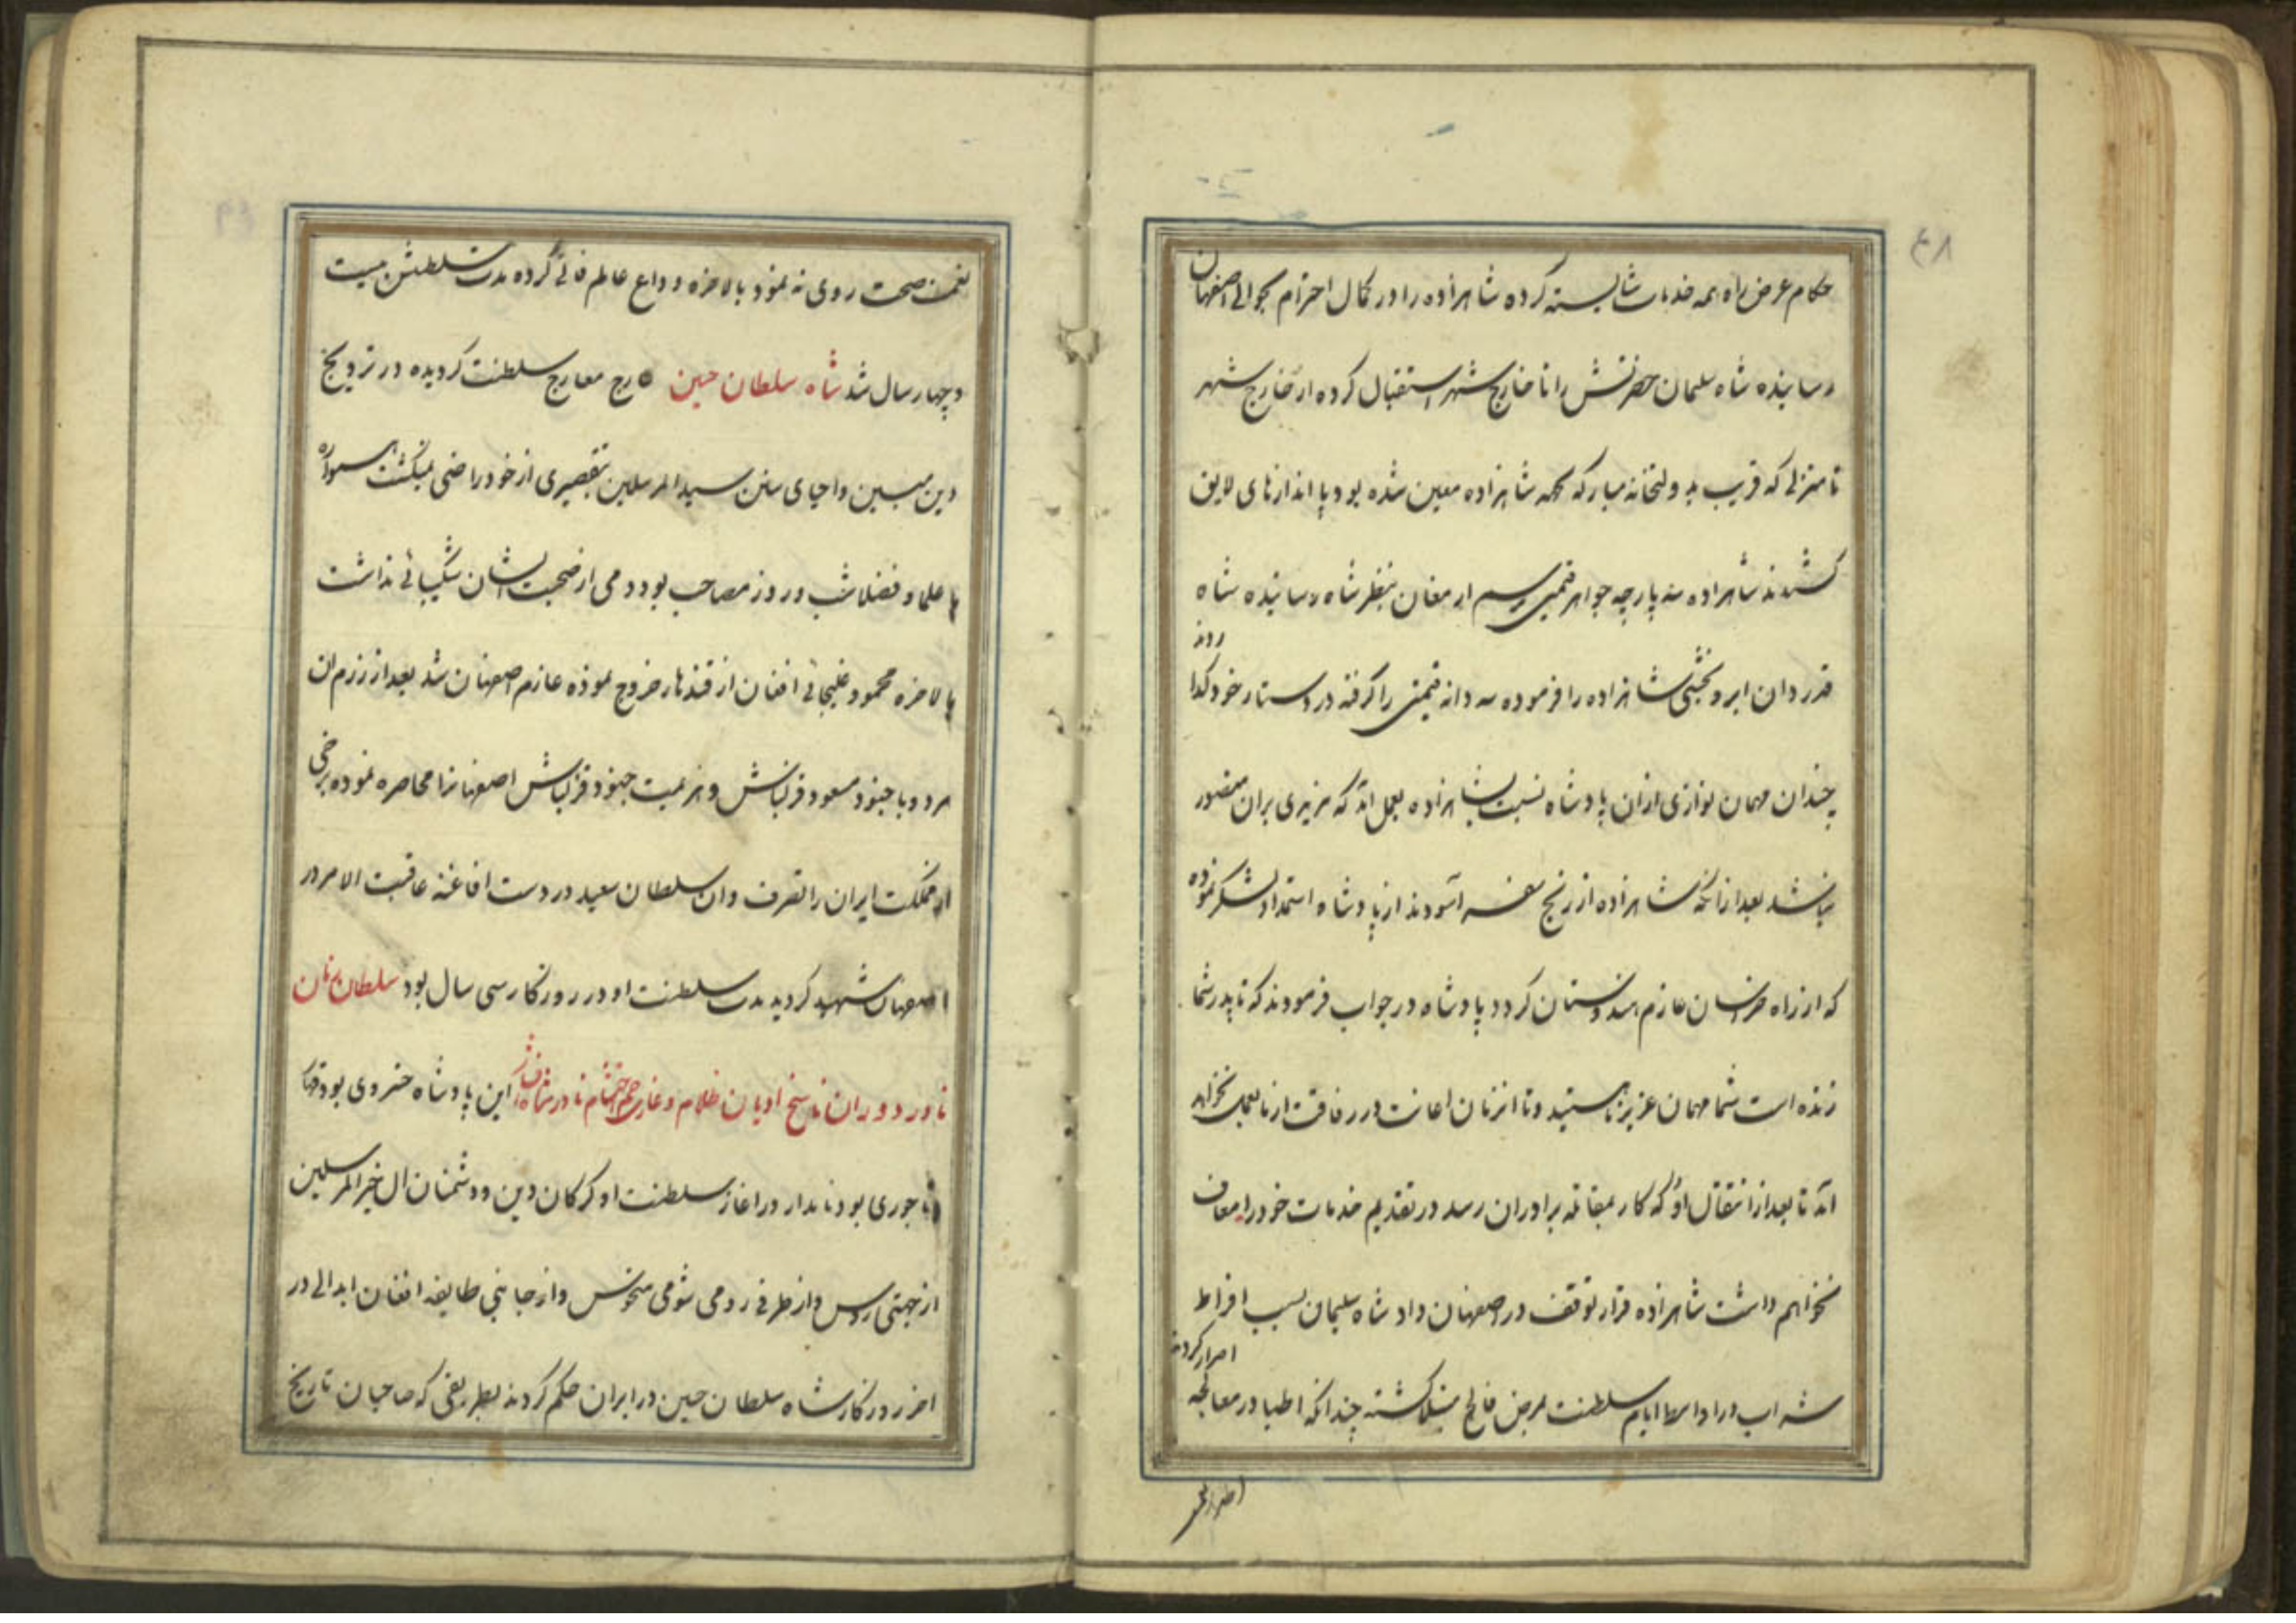 ۴۸
حکام عرض راه همه خدمات شایسته کرده شاهزاده را در کمال احترام بحوالی اصفهان
رسانیده شاه سلیمان حضرتش را تا خارج شهر استقبال کرده از خارج شهر
تا منزلی که قریب بدولتخانه مبارکه بجهه شاهزاده معین شده بود پا اندازهای لایق
کشیدند شاهزاده سه پارچه جواهر قیمتی برسم ارمغان بنظر شاه رسانیده شاه
قدردان ابرو بخشی شاهزاده را فرموده سه دانه قیمتی را گرفته در دستار خود کذاردند
چندان مهمان نوازی ازان پادشاه نسبت بشاهزاده بعمل آمد که مزیدی بران متصور
نباشد بعد ازانکه شاهزاده از رنج سفر آسودند از پادشاه استمداد لشکر نموده
که از راه خراسان عازم هندوستان کردد پادشاه در جواب فرمودند که تا پدر شما
زنده است شما مهمان عزیز ما هستید و تا انزمان اعانت و رفاقت از ما بعمل نخواهد
آمد تا بعد از انتقال او که کار بمقاتله برادران رسد در تقدیم خدمات خود را معاف
نخواهم داشت شاهزاده قرار توقف در اصفهان داد شاه سلیمان بسبب افراط
شراب در اواسط ایام سلطنت بمرض فالج مبتلا کشته چندانکه اطبا در معالجه اصرار کردند
نعمت صحت روی نه نمود بالاخره وداع عالم فانی کرده مدت سلطنتش بیست
و چهار سال شد شاه سلطان حسین عارج معارج سلطنت کردیده در ترویج
دین مبین و احیای سنن سید المرسلین بتقصیری از خود راضی نمیکشت همواره
با علما و فضلا شب و روز مصاحب بود و دمی از صحبت ایشان شکیبائی نداشت
بالاخره محمود غلیجائی افغان از قندهار خروج نموده عازم اصفهان شد بعد از رزم ان
مردود با جنود مسعود قزلباش و هزیمت جنود قزلباش اصفهانرا محاصره نموده برخی
از مملکت ایران را تصرف وان سلطان سعید در دست افاغنه عاقبت الامر در
اصفهان شهید کردید مدت سلطنت او در روزکار سی سال بود سلطان زمان
نادر دوران ناسخ ادیان ظلام و غازی جم احتشام نادر شاه افشار این پادشاه خسروی بود قهار
تاجوری بود نامدار در اغاز سلطنت او کرکان دین و دشمنان ال خیر المرسلین
از جهتی روس و از طرفی رومی شومی منحوس و از جانبی طایفه افغان ابدالی در
اخر روزکار شاه سلطان حسین در ایران حکم کردند بطریقی که صاحبان تاریخ